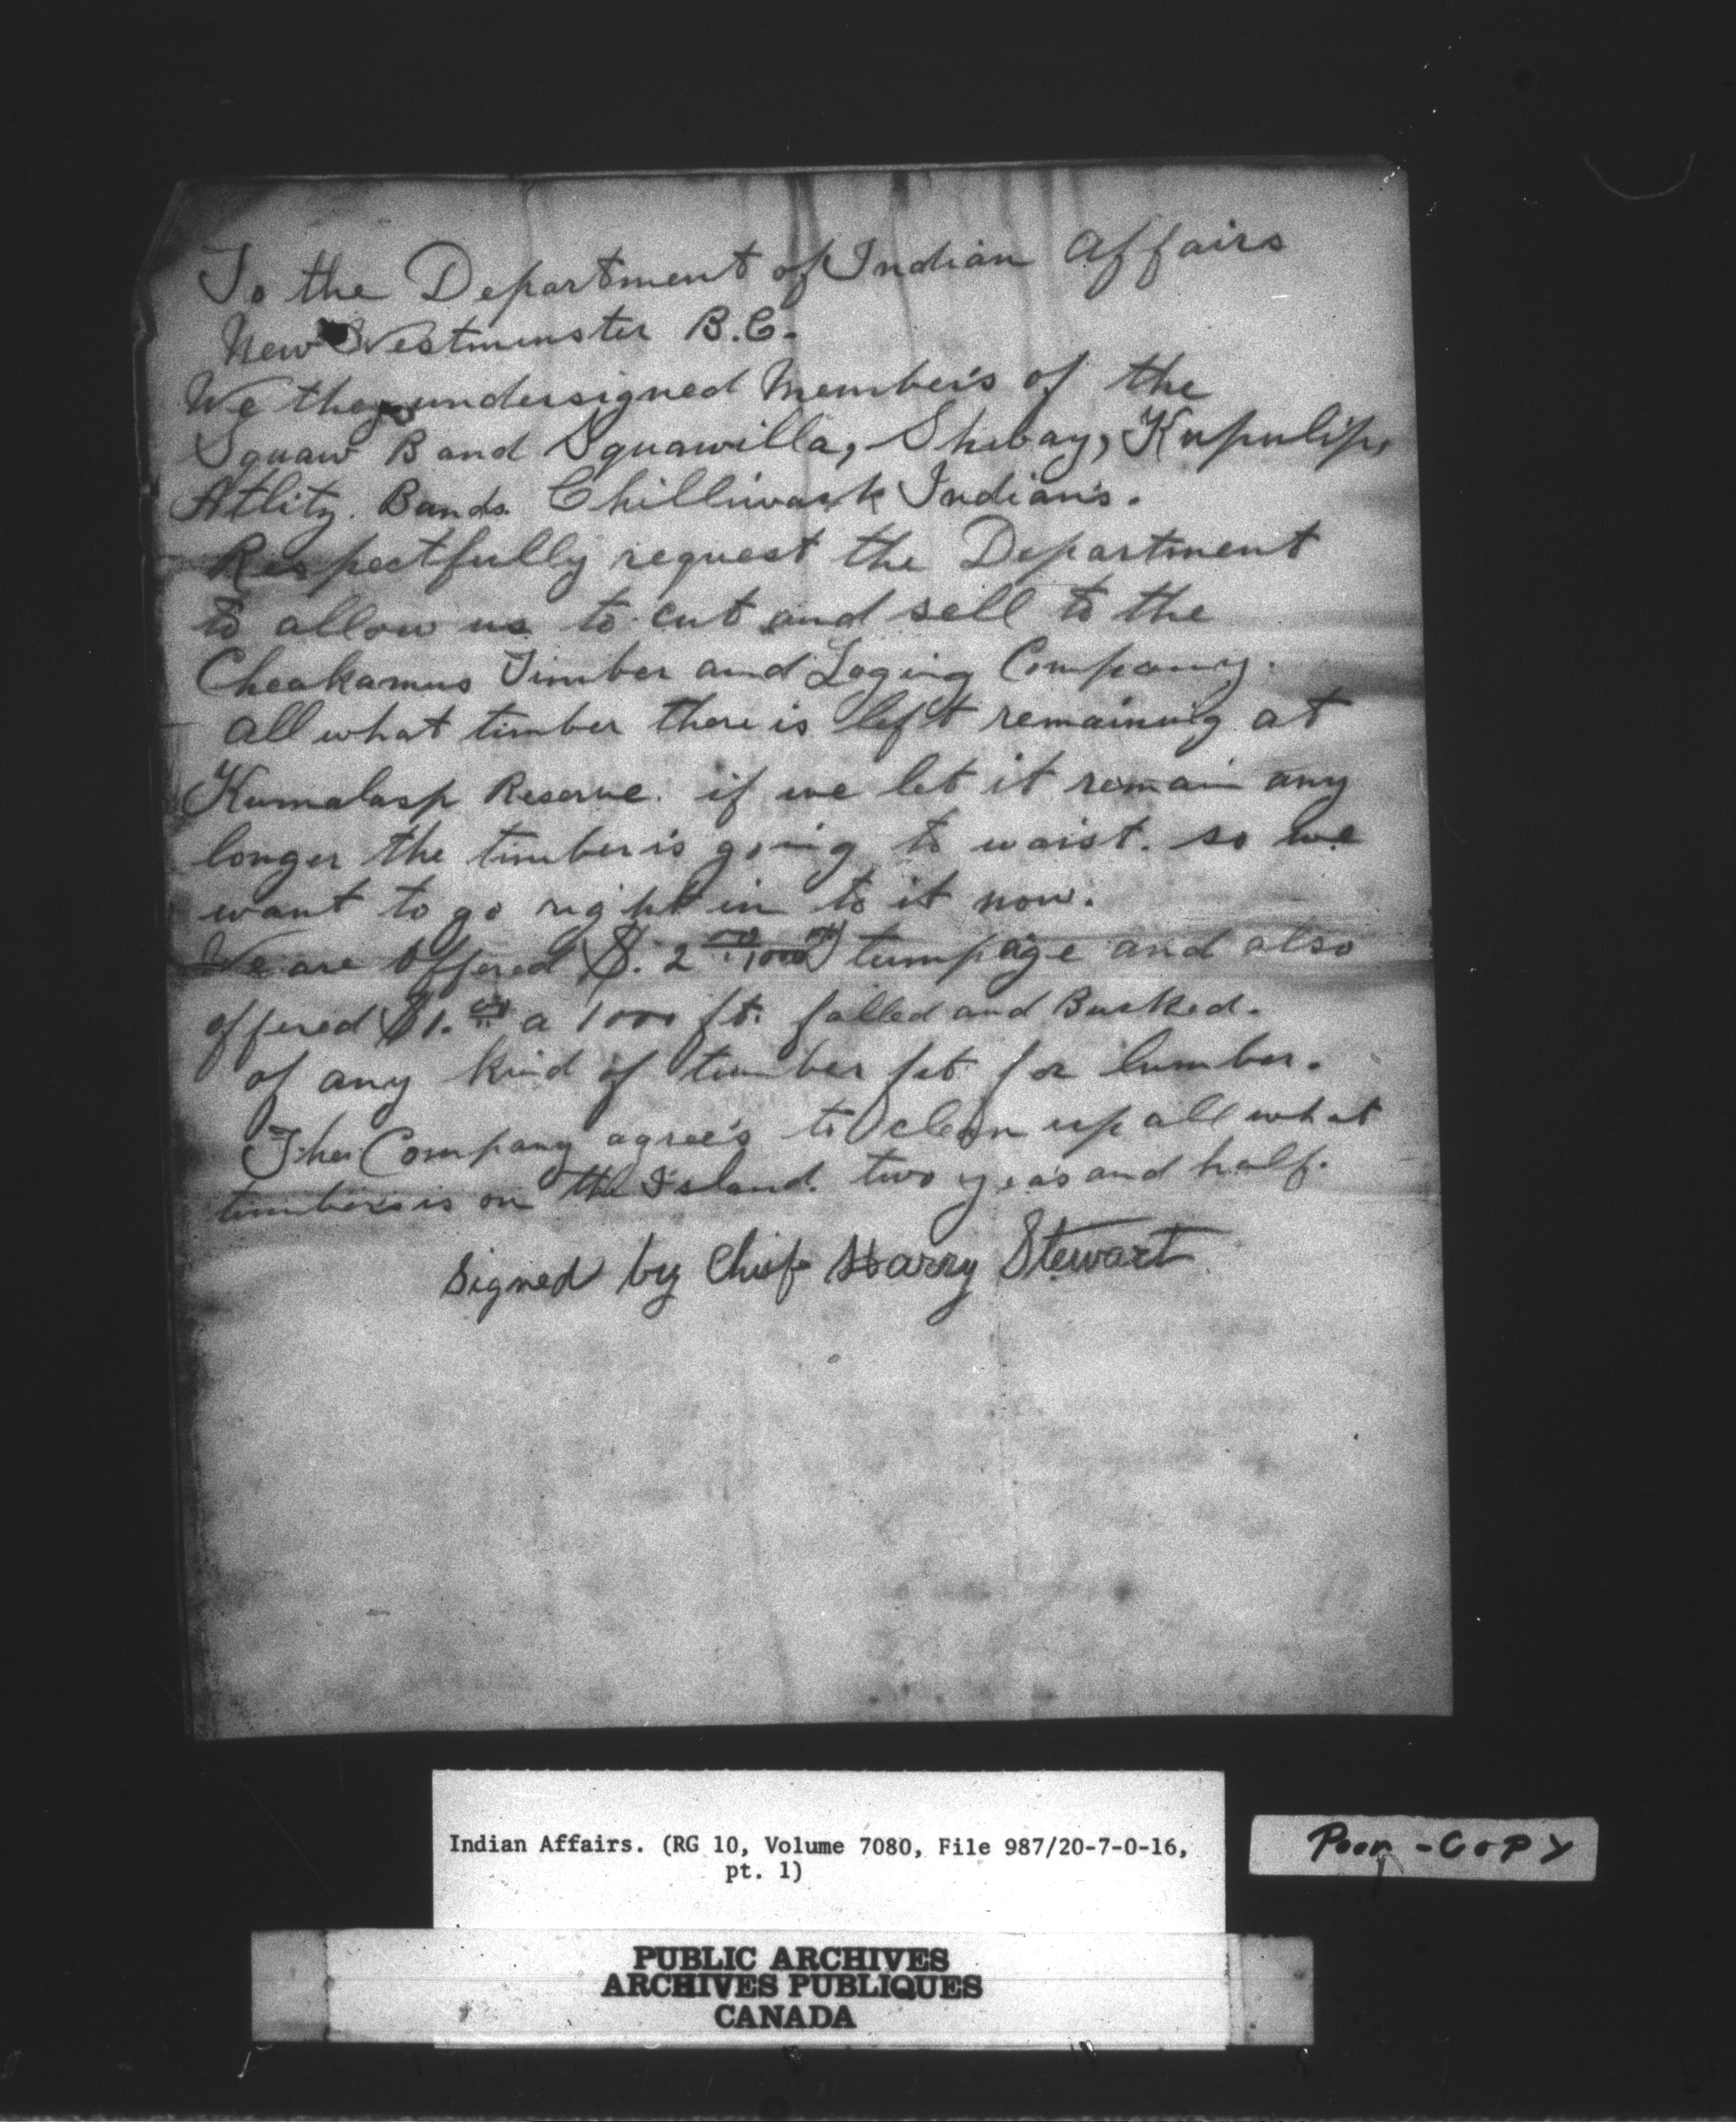 To the Department of Indian Affairs
New Westminster B.C.
We the undersigned Member's of the
Squaw Band Squawilla, Shibay, Kupulip,
Atlitz. Bands Chilliwack Indian's.
Respectfully request the Department
to allow us to cut and sell to the
Cheakamus Timber and Loging Company.
all what timber there is left remaining at
Kumalasp Reserve. if we let it remain any
longer the timber is going to waist. so we
want to go right in to it now.
We are offered $. 2 tumpage and also
offered $1. a 1000 ft. falled and Bucked.
of any kind of timber fit for lumber.
The Company agree's to clean up all what
timber's is on the Island. two years and half.
Signed by Chief Harry Stewart
Indian Affairs. (RG 10, Volume 7080, File 987/20-7-0-16,
pt. 1)
Poor-COPY
PUBLIC ARCHIVES
ARCHIVES PUBLIQUES
CANADA